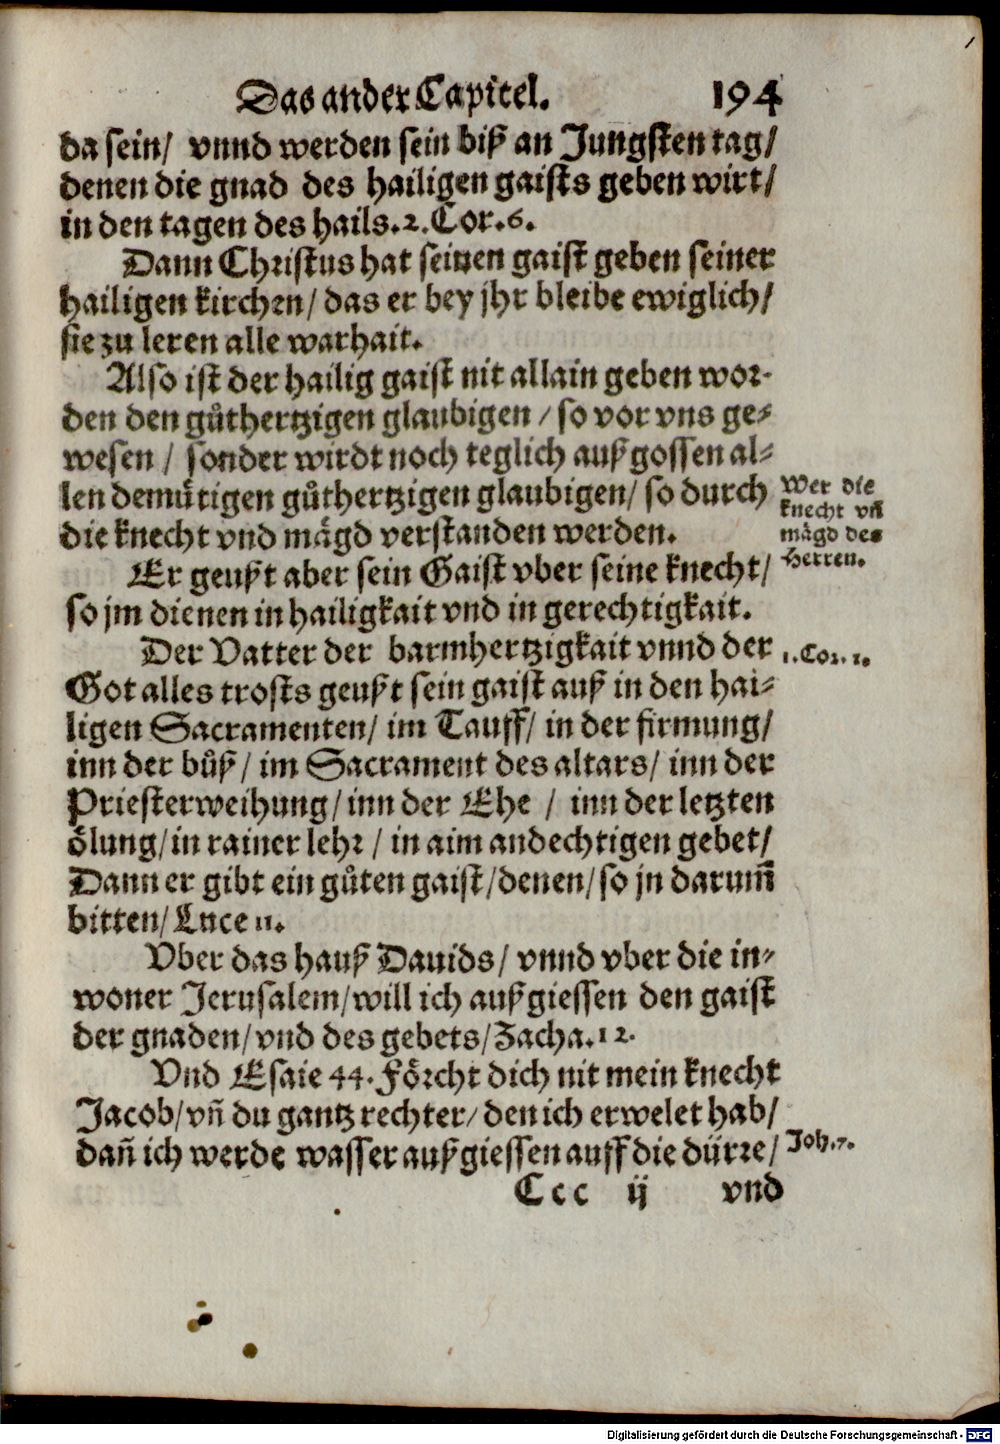 Das ander Capitel. 194
da sein/ vnnd werden sein biß an Jungsten tag/
denen die gnad des hailigen gaists geben wirt/
in den tagen des hails. 2. Cor. 6.
Dann Christus hat seinen gaist geben seiner
hailigen kirchen/ das er bey jhr bleibe ewiglich/
sie zu leren alle warhait.
Also ist der hailig gaist nit allain geben wor-
den den gůthertzigen glaubigen/ so vor vns ge-
wesen/ sonder wirdt noch teglich außgossen al-
len demůtigen gůthertzigen glaubigen/ so durch
die knecht vnd mågd verstanden werden.
Wer die
knecht vñ
mågd des
Herren.
Er geußt aber sein Gaist vber seine knecht/
so jm dienen in hailigkait vnd in gerechtigkait.
Der Vatter der barmhertzigkait vnnd der
1. Cor. 1.
Got alles trosts geußt sein gaist auß in den hai-
ligen Sacramenten/ im Tauff/ in der firmung/
inn der bůß/ im Sacrament des altars/ inn der
Priesterweihung/ inn der Ehe / inn der letzten
ölung/ in rainer lehr / in aim andechtigen gebet/
Dann er gibt ein gůten gaist/ denen/ so jn darum̃
bitten/ Luce 11.
Vber das hauß Dauids/ vnnd vber die in-
woner Jerusalem/ will ich außgiessen den gaist
der gnaden/ vnd des gebets/ Zacha. 12.
Vnd Esaie 44. Förcht dich nit mein knecht
Jacob/ vñ du gantz rechter/ den ich erwelet hab/
dañ ich werde wasser außgiessen auff die dürre/
Joh. 7.
Ccc ij vnd
Digitalisierung gefördert durch die Deutsche Forschungsgemeinschaft - DFG